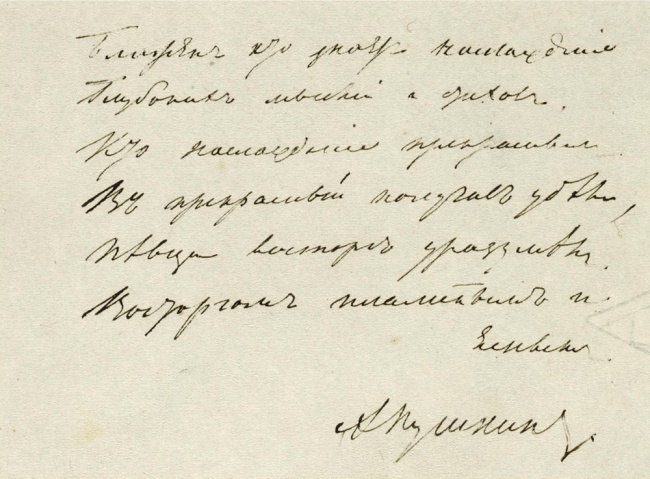 Блаженъ кто знаетъ наслажденіе
Глубокихъ мыслей и стиховъ.
Кто наслажденіе прекраснымъ
Въ прекрасный получилъ удѣлъ,
Пѣвца восторгъ уразумѣлъ
Восторгомъ пламеннымъ и
яснымъ.
А Пушкинъ.